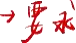 → 要求